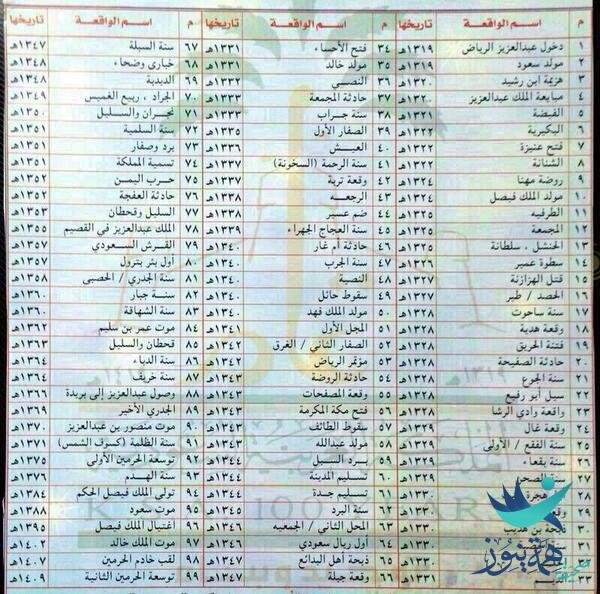 م اسم الواقعة تاريخها م اسم الواقعة تاريخها م اسم الواقعة تاريخها
١ دخول عبدالعزيز الرياض ١٣١٩هـ ٣٤ فتح الأحساء ١٣٣١هـ ٦٧ سنة السبلة ١٣٤٧هـ
٢ مولد سعود ١٣١٩هـ ٣٥ مولد خالد ١٣٣١هـ ٦٨ خبارى وضحاء ١٣٤٨هـ
٣ هزيمة ابن رشيد ١٣٢٠هـ ٣٦ النصبي ١٣٣٢هـ ٦٩ الدبدبة ١٣٤٨هـ
٤ مبايعة الملك عبدالعزيز ١٣٢٠هـ ٣٧ حادثة المجمعة ١٣٣٣هـ ٧٠ الجراد ، ربيع الغميس ١٣٤٩هـ
٥ الفيضة ١٣٢١هـ ٣٨ سنة جراب ١٣٣٣هـ ٧١ نجران والسليل ١٣٥٠هـ
٦ البكيرية ١٣٢٢هـ ٣٩ الصفار الأول ١٣٣٥هـ ٧٢ سنة السلمية ١٣٥١هـ
٧ فتح عنيزة ١٣٢٢هـ ٤٠ العيش ١٣٣٦هـ ٧٣ برد وصفار ١٣٥١هـ
٨ الشنانة ١٣٢٢هـ ٤١ سنة الرحمة (السخونة) ١٣٣٧هـ ٧٤ تسمية المملكة ١٣٥١هـ
٩ روضة مهنا ١٣٢٤هـ ٤٢ وقعة تربة ١٣٣٧هـ ٧٥ حرب اليمن ١٣٥٢هـ
١٠ مولد الملك فيصل ١٣٢٤هـ ٤٣ الرجعه ١٣٣٧هـ ٧٦ حادثة العفجة ١٣٥٢هـ
١١ الطرفيه ١٣٢٥هـ ٤٤ ضم عسير ١٣٣٨هـ ٧٧ السليل وقحطان ١٣٥٣هـ
١٢ المجمعة ١٣٢٥هـ ٤٥ سنة العجاج الجهراء ١٣٣٩هـ ٧٨ الملك عبدالعزيز في القصيم ١٣٥٥هـ
١٣ الحنشل ، سلطانة ١٣٢٥هـ ٤٦ حادثة أم غار ١٣٤٠هـ ٧٩ القرش السعودي ١٣٥٧هـ
١٤ سطوة عمير ١٣٢٦هـ ٤٧ سنة الجرب ١٣٤٠هـ ٨٠ أول بئر بترول ١٣٥٧هـ
١٥ قتل الهزازنة ١٣٢٧هـ ٤٨ النصية ١٣٤٠هـ ٨١ سنة الجدري / الحصبى ١٣٥٨هـ
١٦ الحصد / طير ١٣٢٧هـ ٤٩ سقوط حائل ١٣٤٠هـ ٨٢ سنة جبار ١٣٦٠هـ
١٧ سنة ساحوت ١٣٢٧هـ ٥٠ مولد الملك فهد ١٣٤٠هـ ٨٣ سنة الشهاقة ١٣٦٠هـ
١٨ وقعة هدية ١٣٢٨هـ ٥١ المحل الأول ١٣٤١هـ ٨٤ موت عمر بن سليم ١٣٦٢هـ
١٩ فتنة الحريق ١٣٢٨هـ ٥٢ الصفار الثاني / الغرق ١٣٤٢هـ ٨٥ قحطان والسليل ١٣٦٣هـ
٢٠ حادثة الصفيحة ١٣٢٨هـ ٥٣ مؤتمر الرياض ١٣٤٢هـ ٨٦ سنة الدباء ١٣٦٤هـ
٢١ سنة الجوع ١٣٢٨هـ ٥٤ حادثة الروضة ١٣٤٣هـ ٨٧ سنة خريف ١٣٦٤هـ
٢٢ سيل أبو رفيع ١٣٢٨هـ ٥٥ وقعة المصفحات ١٣٤٣هـ ٨٨ وصول عبدالعزيز إلى بريدة ١٣٦٦هـ
٢٣ واقعة وادي الرشا ١٣٢٨هـ ٥٦ فتح مكة المكرمة ١٣٤٣هـ ٨٩ الجدري الأخير ١٣٦٩هـ
٢٤ وقعة غال ١٣٢٩هـ ٥٧ سقوط الطائف ١٣٤٣هـ ٩٠ موت منصور بن عبدالعزيز ١٣٧٠هـ
٢٥ سنة الفقع / الأولى ١٣٢٩هـ ٥٨ مولد عبدالله ١٣٤٣هـ ٩١ سنة الظلمة (كسوف الشمس) ١٣٧١هـ
٢٦ سنة بقعاء ١٣٢٩هـ ٥٩ برد السيل ١٣٤٤هـ ٩٢ توسعة الحرمين الأولى ١٣٧٥هـ
٢٧ ١٣٢٩هـ ٦٠ تسليم المدينة ١٣٤٤هـ ٩٣ سنة الهدم ١٣٧٦هـ
٢٨ هجرة ١٣٣٠هـ ٦١ تسليم جدة ١٣٤٤هـ ٩٤ تولى الملك فيصل الحكم ١٣٨٤هـ
٢٩ ١٣٣٠هـ ٦٢ سنة البرد ١٣٤٥هـ ٩٥ موت سعود ١٣٨٨هـ
٣٠ بن هديب ١٣٣٠هـ ٦٣ المحل الثاني / الجمعيه ١٣٤٦هـ ٩٦ اغتيال الملك فيصل ١٣٩٥هـ
٣١ ١٣٣٠هـ ٦٤ أول ريال سعودي ١٣٤٦هـ ٩٧ موت الملك خالد ١٤٠٢هـ
١٣٣٠هـ ٦٥ ذبحة أهل البدائع ١٣٤٧هـ ٩٨ لقب خادم الحرمين ١٤٠٧هـ
٣٣ ١٣٣١هـ ٦٦ وقعة جبلة ١٣٤٧هـ ٩٩ توسعة الحرمين الثانية ١٤٠٩هـ